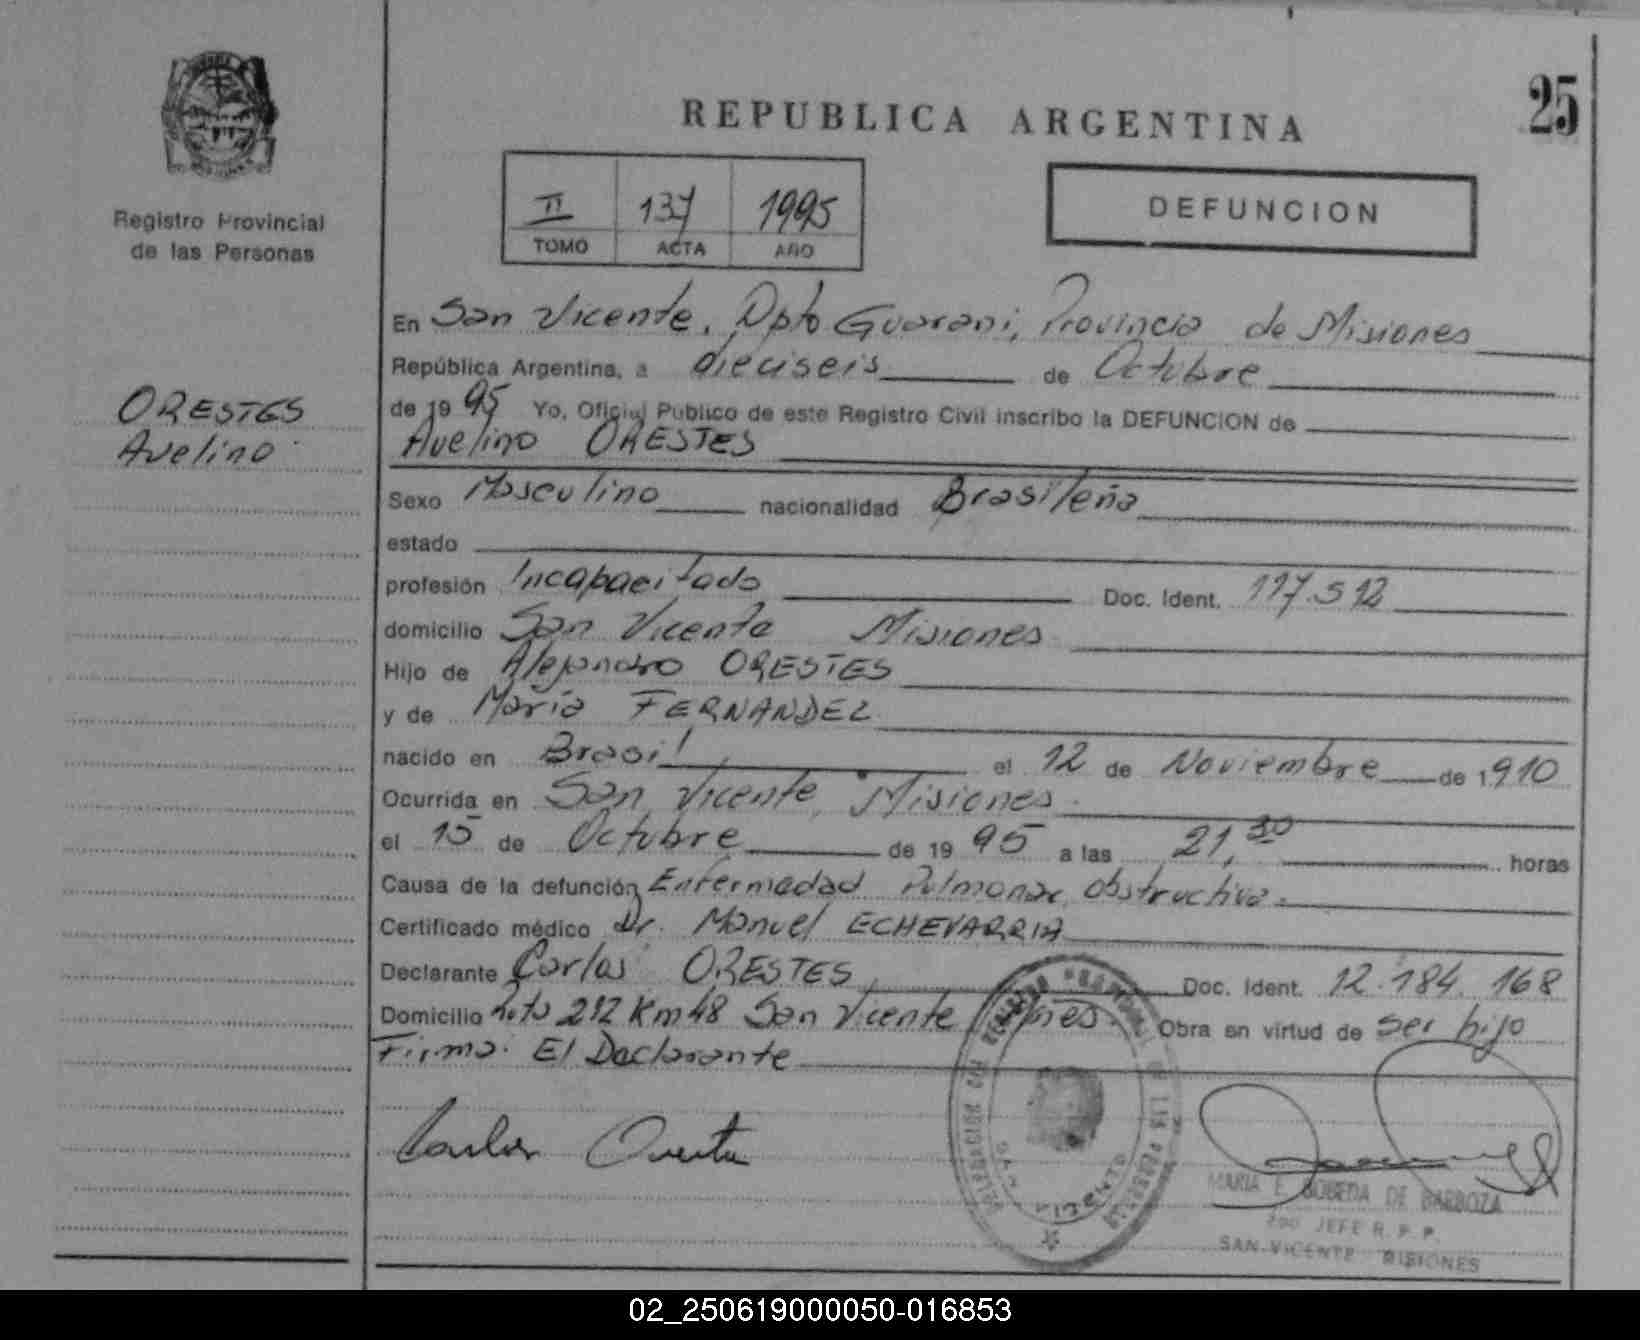 25
REPUBLICA ARGENTINA
Registro Provincial
de las Personas
II 137 1995
TOMO ACTA AÑO
DEFUNCION
En San Vicente, Dpto Guarani, Provincia de Misiones
República Argentina, a dieciseis de Octubre
de 19 95 Yo, Oficial Público de este Registro Civil inscribo la DEFUNCION de
Avelino ORESTES
ORESTES
Avelino
Sexo Masculino nacionalidad Brasileña
estado
profesión Incapacitado Doc. Ident. 117.512
domicilio San Vicente Misiones
Hijo de Alejandro ORESTES
y de María FERNANDEZ
nacido en Brasil el 12 de Noviembre de 1910
Ocurrida en San Vicente, Misiones.
el 15 de Octubre de 19 95 a las 21,30 horas
Causa de la defunción Enfermedad Pulmonar obstructiva.
Certificado médico Dr. Manuel ECHEVARRIA
Declarante Carlos ORESTES Doc. Ident. 12.184.168
Domicilio Ruta 212 Km 48 San Vicente Mnes. Obra en virtud de ser hijo
Firma: El Declarante
Carlos
MARIA E. BOBEDA DE BARBOZA
2do JEFE R. P. P.
SAN VICENTE MISIONES
02_250619000050-016853